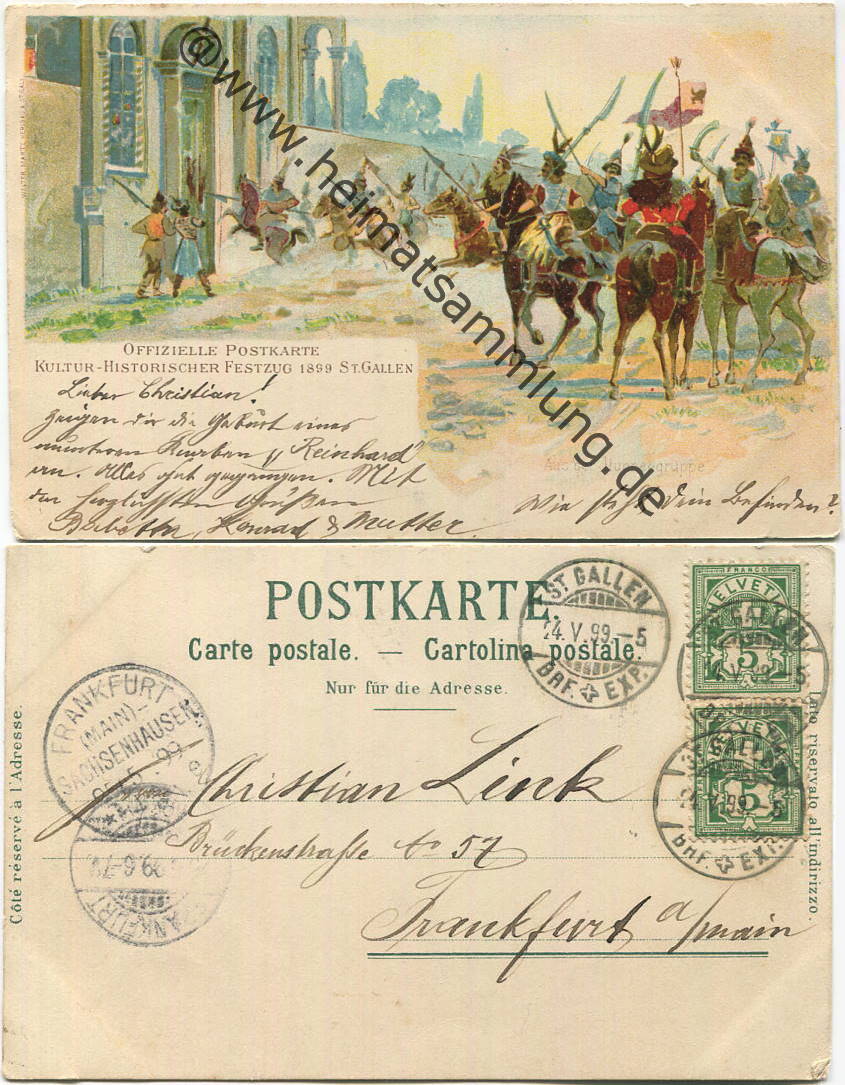 @www.heimatsammlung.de
OFFIZIELLE POSTKARTE
KULTUR-HISTORISCHER FESTZUG 1899 ST.GALLEN
Lieber Christian!
zeigen dir die Geburt eines
munteren Knaben „Reinhard"
an. Alles gut gegangen. Mit
den herzlichsten Grüßen
Babetta, Konrad & Mutter.
Aus der Hunnengruppe
Wie steht dein Befinden?
POSTKARTE.
Carte postale. — Cartolina postale.
Nur für die Adresse.
Côté réservé à l'Adresse.
Lato riservato all'indirizzo.
ST. GALLEN
24.V.99.-5
BHF. EXP.
FRANCO
HELVETIA
5
ST. GALLEN
HELVETIA
5
ST. GALLEN
24.V.99.-5
BHF. EXP.
FRANKFURT
(MAIN)-
SACHSENHAUSEN
FRANKFURT
Christian Link
Brückenstraße No 57
Frankfurt a/main